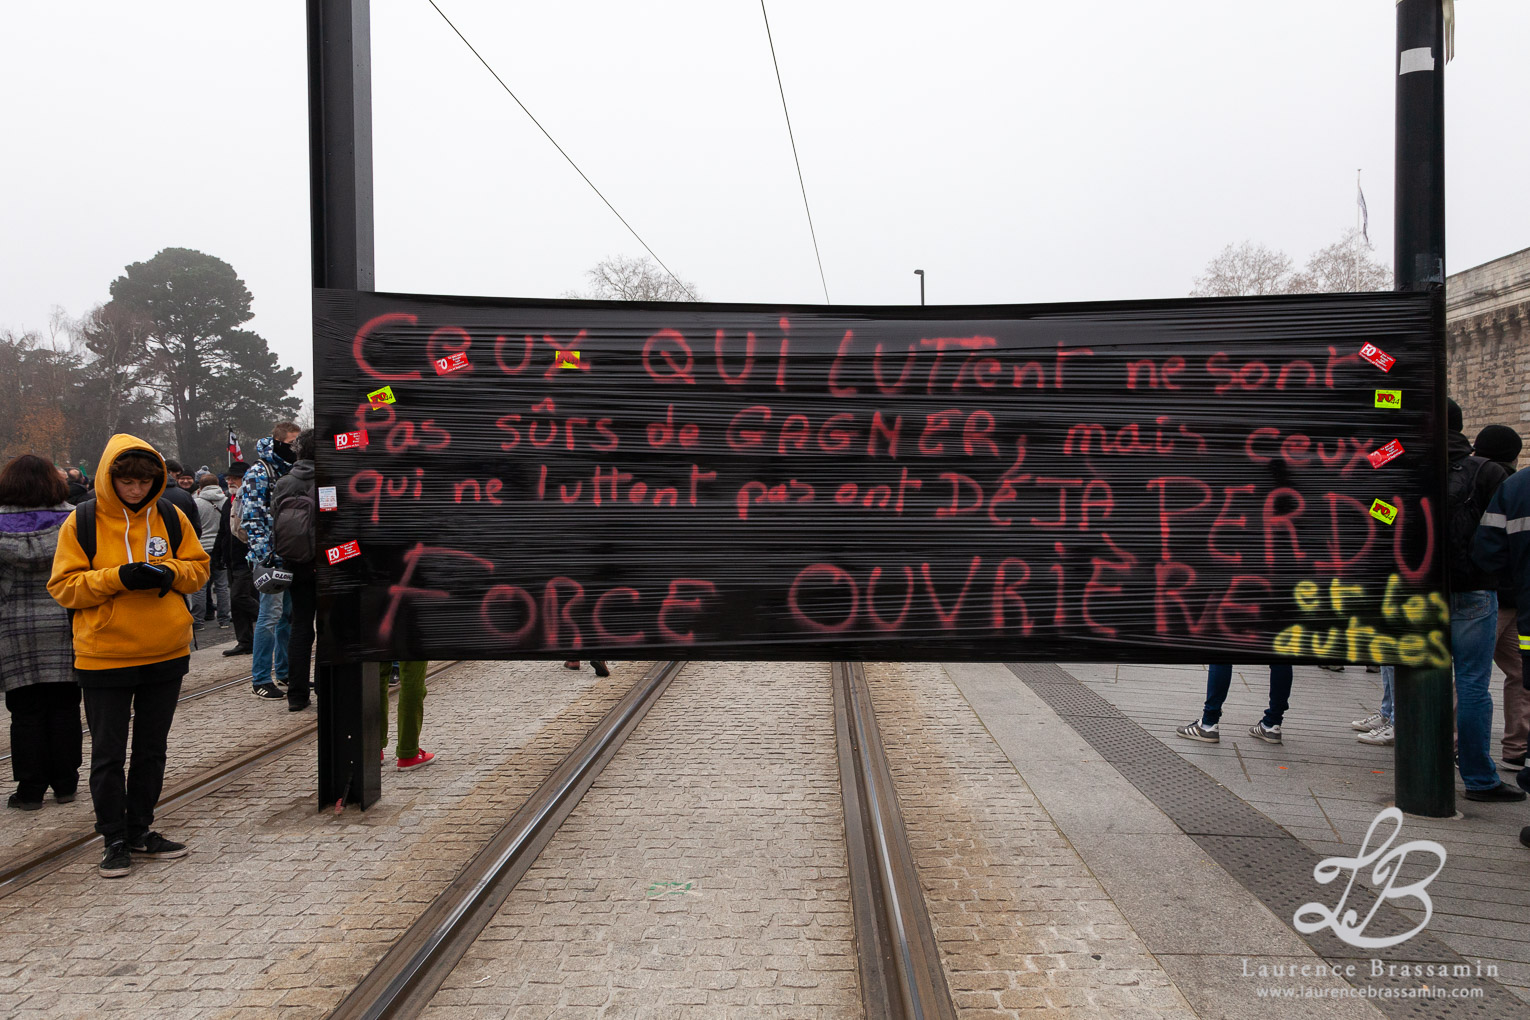 Ceux QUi LUTTent ne sont
Pas sûrs de GAGNER, mais ceux
qui ne luttent pas ont DÉJA PERDU
FORCE OUVRIÈRE et les
autres
FO
FO
FO
FO44
FO44
FO
Laurence Brassamin
www.laurencebrassamin.com